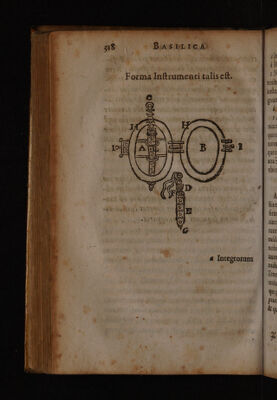 518 BASILICA
Forma Inſtrumenti talis eſt.
C
H H
I A B I
D
E
G
a Integrorum